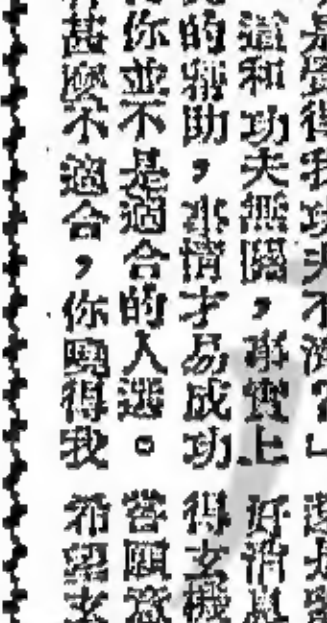 是覺得我功夫不濟？」
道和功夫無關，事實上
的幫助，事情才易成功
你並不是適合的人選。
甚麼不適合，你曉得我
好消息
得玄機
嘗願意
希望老